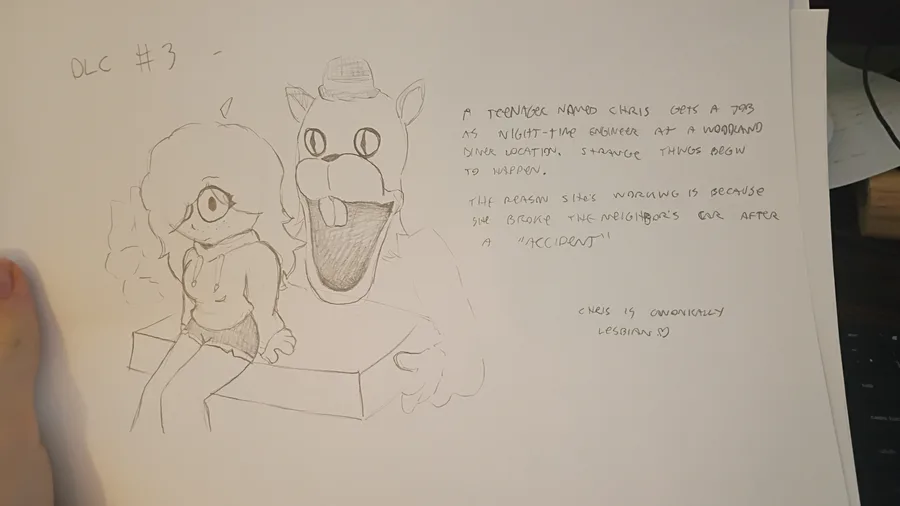 DLC #3 -
A TEENAGER NAMED CHRIS GETS A JOB
AS NIGHT-TIME ENGINEER AT A WOODLAND
DINER LOCATION. STRANGE THINGS BEGIN
TO HAPPEN.
THE REASON SHE'S WORKING IS BECAUSE
SHE BROKE THE NEIGHBOR'S CAR AFTER
A "ACCIDENT"
CHRIS IS CANONICALLY
LESBIAN ♡